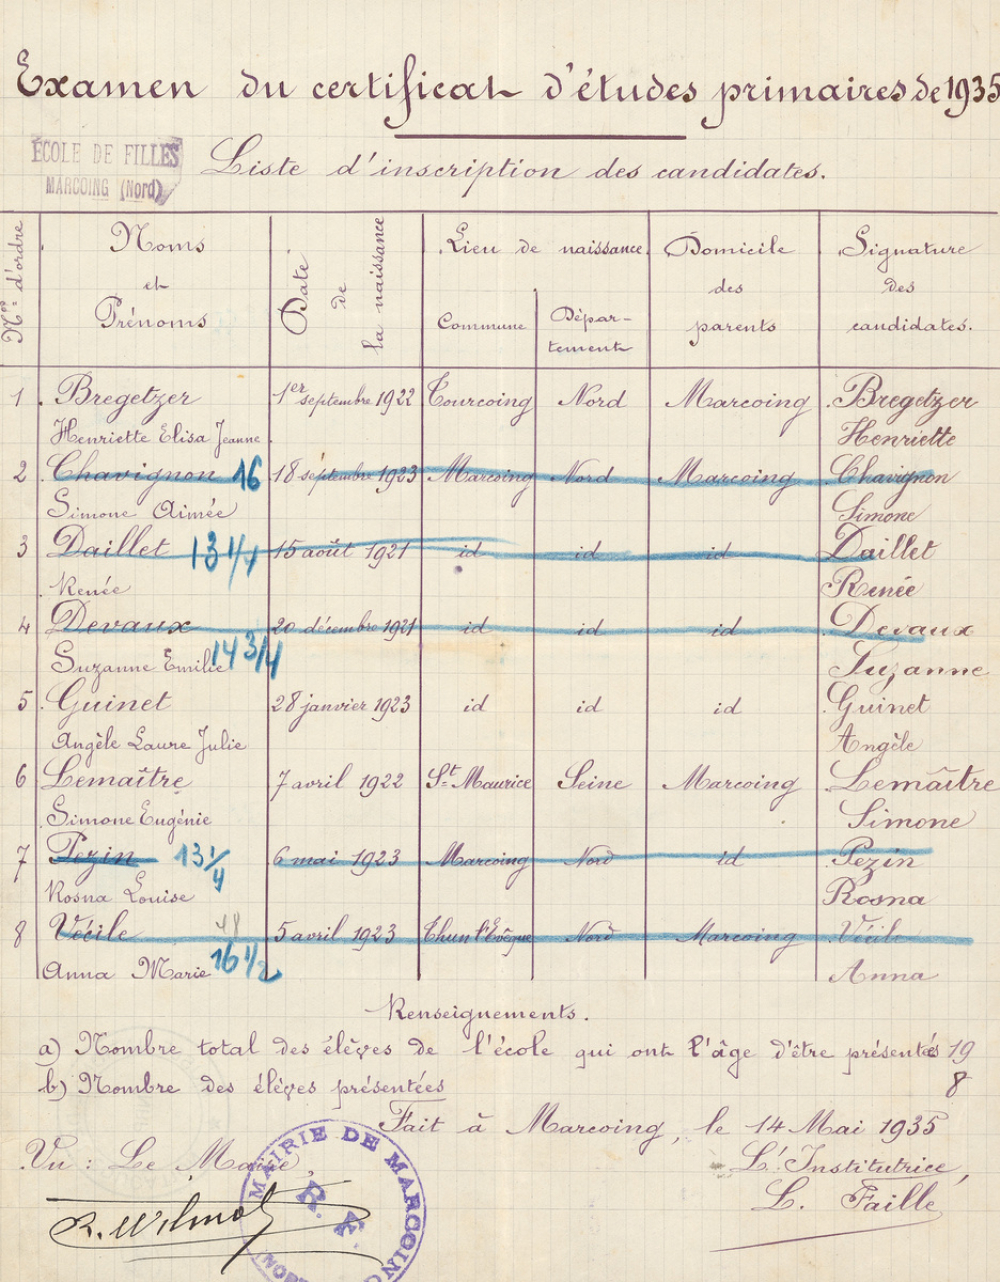 Examen du certificat d'études primaires de 1935
ÉCOLE DE FILLES
MARCOING (Nord)
Liste d'inscription des candidates.
Nos d'ordre
Noms et Prénoms
Date de la naissance
Lieu de naissance
Commune
Dépar-
tement
Domicile des parents
Signature des candidates.
1 Bregetzer 1er septembre 1922 Tourcoing Nord Marcoing Bregetzer
Henriette Elisa Jeanne Henriette
2 Chavignon 16 18 septembre 1923 Marcoing Nord Marcoing Chavignon
Simone Aimée Simone
3 Daillet 13 1/4 15 août 1921 id id id Daillet
Renée Renée
4 Devaux 20 décembre 1921 id id id Devaux
Suzanne Emilie 14 3/4 Suzanne
5 Guinet 28 janvier 1923 id id id Guinet
Angèle Laure Julie Angèle
6 Lemaître 7 avril 1922 St Maurice Seine Marcoing Lemaître
Simone Eugénie Simone
7 Pezin 13 1/4 6 mai 1923 Marcoing Nord id Pezin
Rosna Louise Rosna
8 Vécile 5 avril 1923 Thun l'Evêque Nord Marcoing Vécile
Anna Marie 16 1/2 Anna
Renseignements.
a) Nombre total des élèves de l'école qui ont l'âge d'être présentés 19
b) Nombre des élèves présentées 8
Fait à Marcoing, le 14 Mai 1935
Vu : Le Maire,
L'Institutrice,
R. Wilmot
L. Faille
MAIRIE DE MARCOING
R. F.